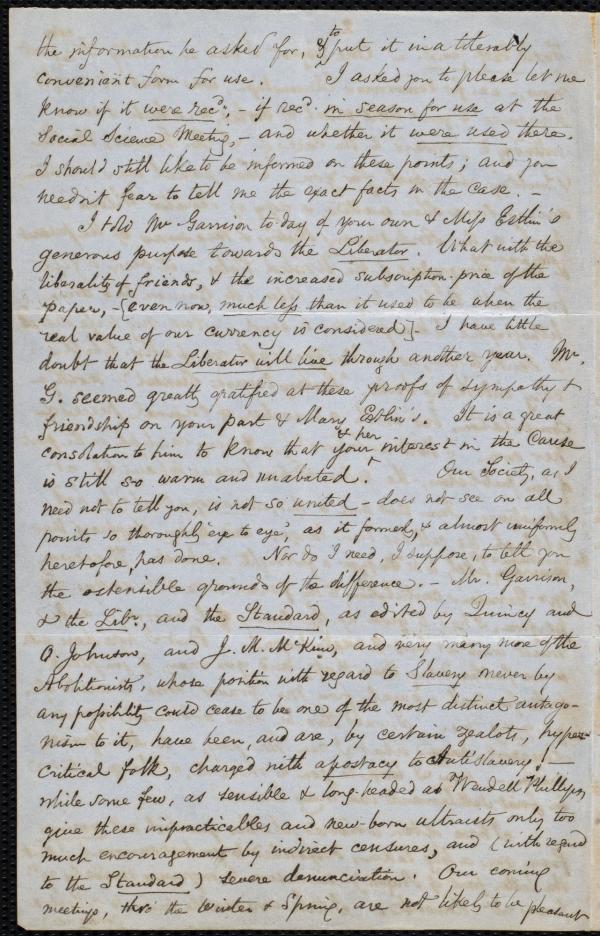 the information he asked for, & to put it in a tolerably
convenient form for use. I asked you to please let me
know if it were recd; - if recd. in season for use at the
Social Science Meeting, - and whether it were used there.
I should still like to be informed on these points; and you
needn't fear to tell me the exact facts in the case. -
I told Mr Garrison to-day of your own & Miss Estlin's
generous purpose towards the Liberator. What with the
liberality of friends, & the increased subscription-price of the
paper, - [even now, much less than it used to be when the
real value of our currency is considered] - I have little
doubt that the Liberator will live through another year. Mr.
G. seemed greatly gratified at these proofs of sympathy &
friendship on your part & Mary Estlin's. It is a great
consolation to him to know that your & her interest in the Cause
is still so warm and unabated. Our Society, as I
need not to tell you, is not so united - does not see on all
points so thoroughly 'eye to eye', as it formerly, & almost uniformly
heretofore, has done. Nor do I need, I suppose, to tell you
the ostensible grounds of the difference. - Mr. Garrison,
& the Libr, and the Standard, as edited by Quincy and
O. Johnson, and J. M. McKim, and very many more of the
Abolitionists, whose position with regard to Slavery never by
any possibility could cease to be one of the most distinct antago-
nism to it, have been, and are, by certain zealots, hyper-
critical folk, charged with apostacy to Antislavery! -
while some few, as sensible & long-headed as Wendell Phillips
give these impracticables and new-born ultraists only too
much encouragement by indirect censures, and (with regard
to the Standard) severe denunciation. Our coming
meetings, thro' the Winter & Spring, are not likely to be pleasant